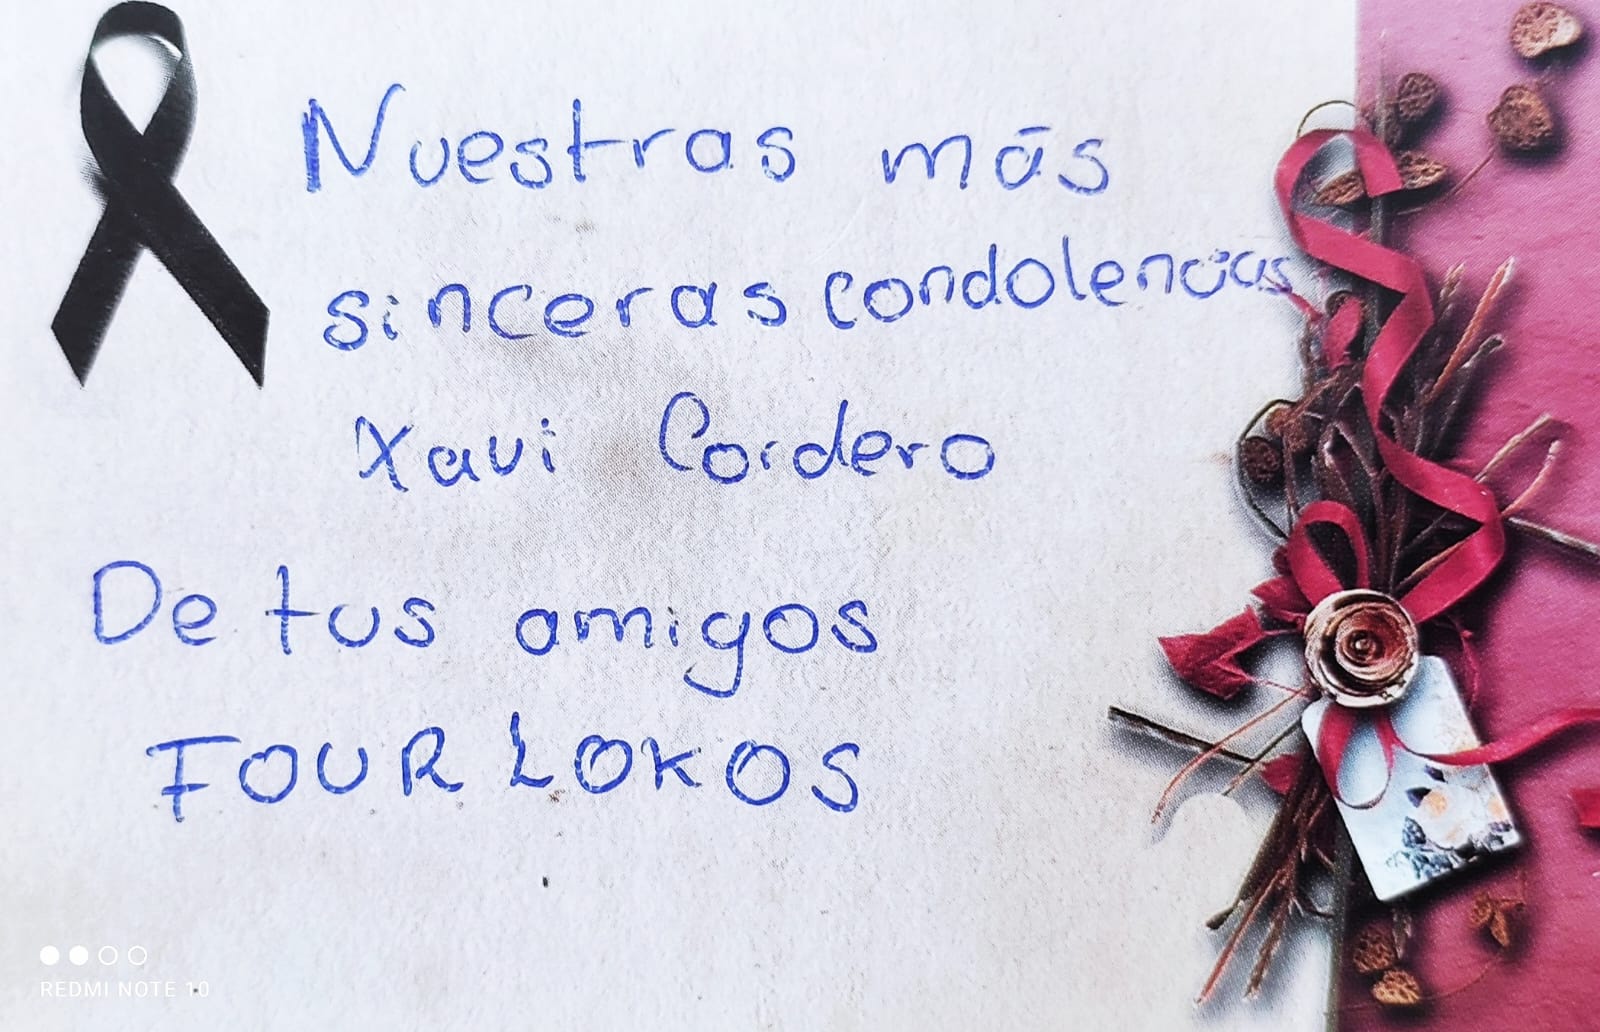 Nuestras más
sinceras condolencias
Xavi Cordero
De tus amigos
FOUR LOKOS
REDMI NOTE 10